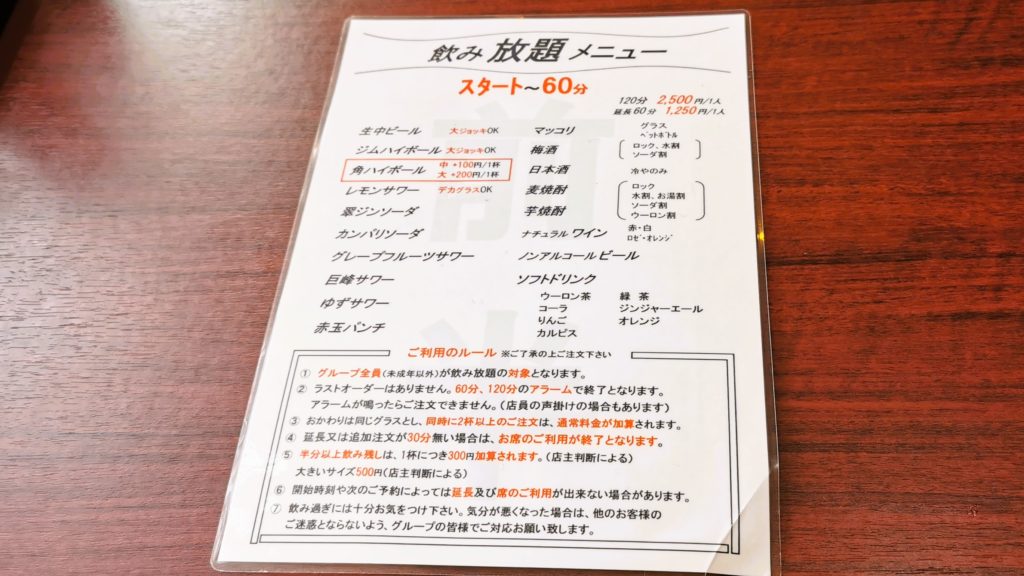 飲み放題メニュー
スタート～60分
120分 2,500円/1人
延長60分 1,250円/1人
生中ビール 大ジョッキOK
ジムハイボール 大ジョッキOK
角ハイボール 中 +100円/1杯
大 +200円/1杯
レモンサワー デカグラスOK
翠ジンソーダ
カンパリソーダ
グレープフルーツサワー
巨峰サワー
ゆずサワー
赤玉パンチ
マッコリ グラス
ペットボトル
梅酒 ロック、水割
ソーダ割
日本酒 冷やのみ
麦焼酎 ロック
水割、お湯割
芋焼酎 ソーダ割
ウーロン割
ナチュラルワイン 赤・白
ロゼ・オレンジ
ノンアルコールビール
ソフトドリンク
ウーロン茶 緑 茶
コーラ ジンジャーエール
りんご オレンジ
カルピス
ご利用のルール ※ご了承の上ご注文下さい
① グループ全員(未成年以外)が飲み放題の対象となります。
② ラストオーダーはありません。60分、120分のアラームで終了となります。
アラームが鳴ったらご注文できません。(店員の声掛けの場合もあります)
③ おかわりは同じグラスとし、同時に2杯以上のご注文は、通常料金が加算されます。
④ 延長又は追加注文が30分無い場合は、お席のご利用が終了となります。
⑤ 半分以上飲み残しは、1杯につき300円加算されます。(店主判断による)
大きいサイズ500円(店主判断による)
⑥ 開始時刻や次のご予約によっては延長及び席のご利用が出来ない場合があります。
⑦ 飲み過ぎには十分お気をつけ下さい。気分が悪くなった場合は、他のお客様の
ご迷惑とならないよう、グループの皆様でご対応お願い致します。